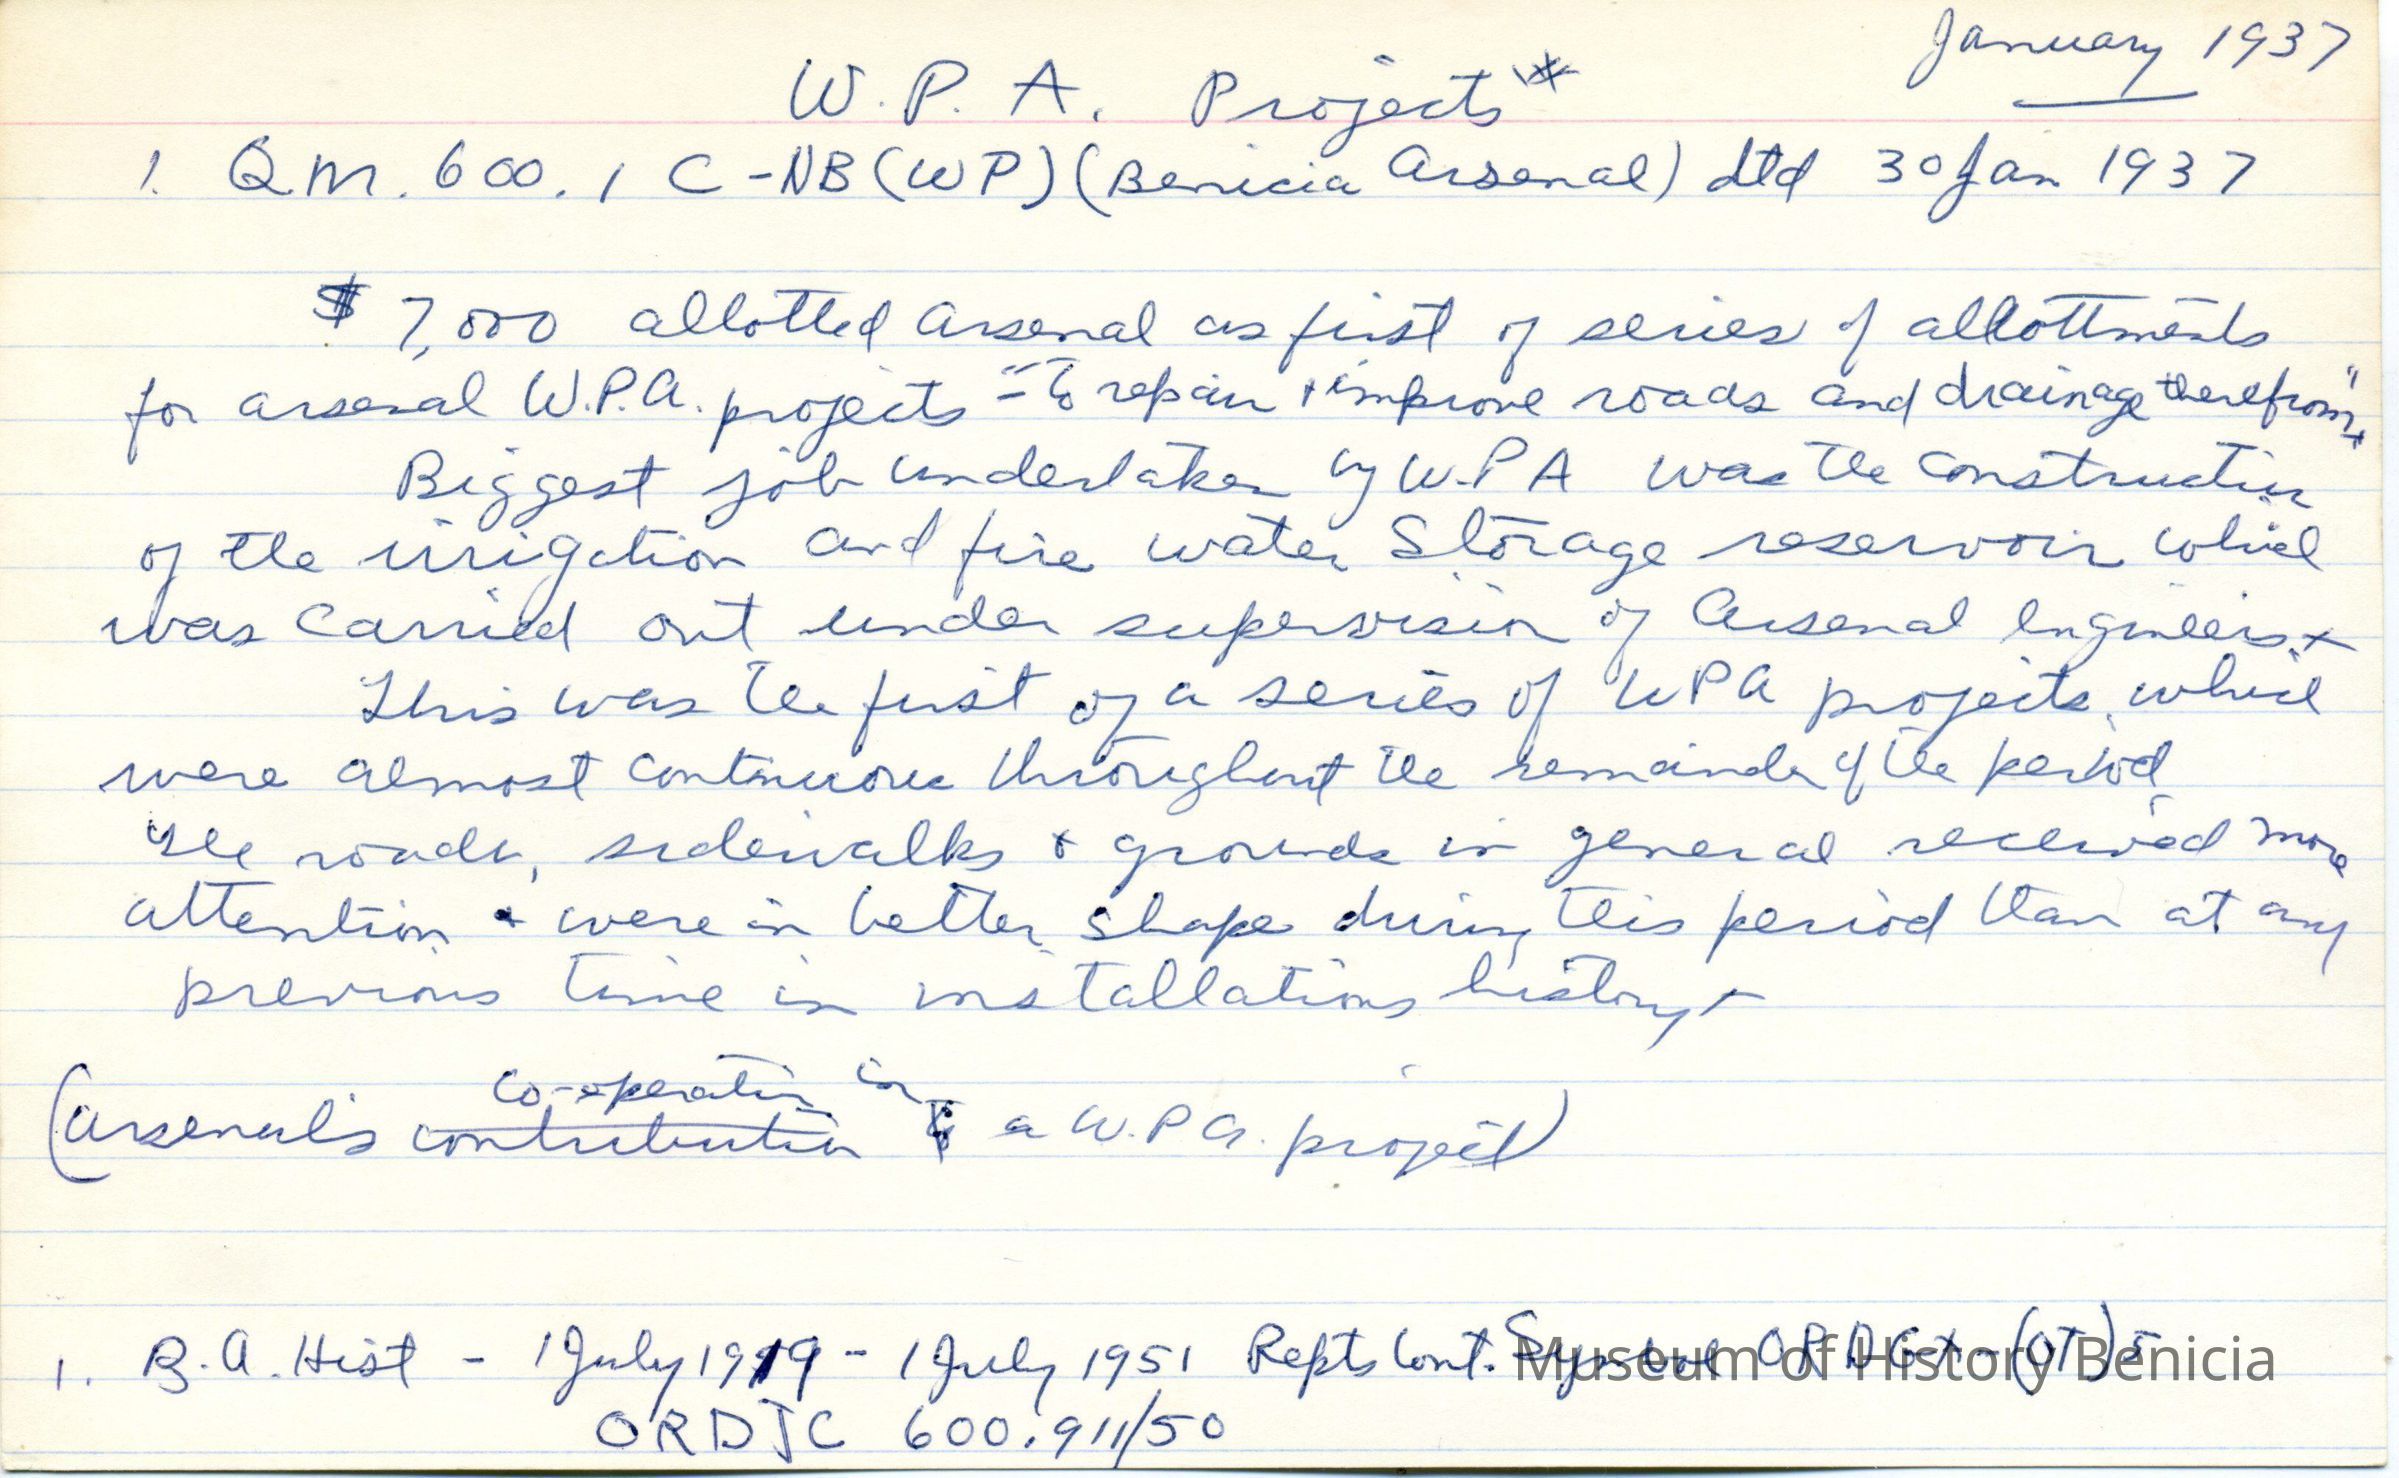 January 1937
W.P.A. Projects*
1. Q.M. 600.1 C-NB(WP)(Benicia Arsenal) dtd 30 Jan 1937
$7,000 allotted Arsenal as first of series of allottments
for arsenal W.P.A. projects - "To repair + improve roads and drainage therefrom"+
Biggest job undertaken by W.P.A was the construction
of the irrigation and fire water storage reservoir which
was carried out under supervision of Arsenal Engineers.+
This was the first of a series of WPA projects which
were almost continuous throughout the remainder of the period
The roads, sidewalks + grounds in general received more
attention + were in better shape during this period than at any
previous time in installations history+
co-operation in
(Arsenal's contribution to a W.P.A. project)
1. B.A. Hist - 1 July 1919 - 1 July 1951 Repts Cont. Symbol ORDGX-(OT)5
ORDJC 600.911/50
Museum of History Benicia